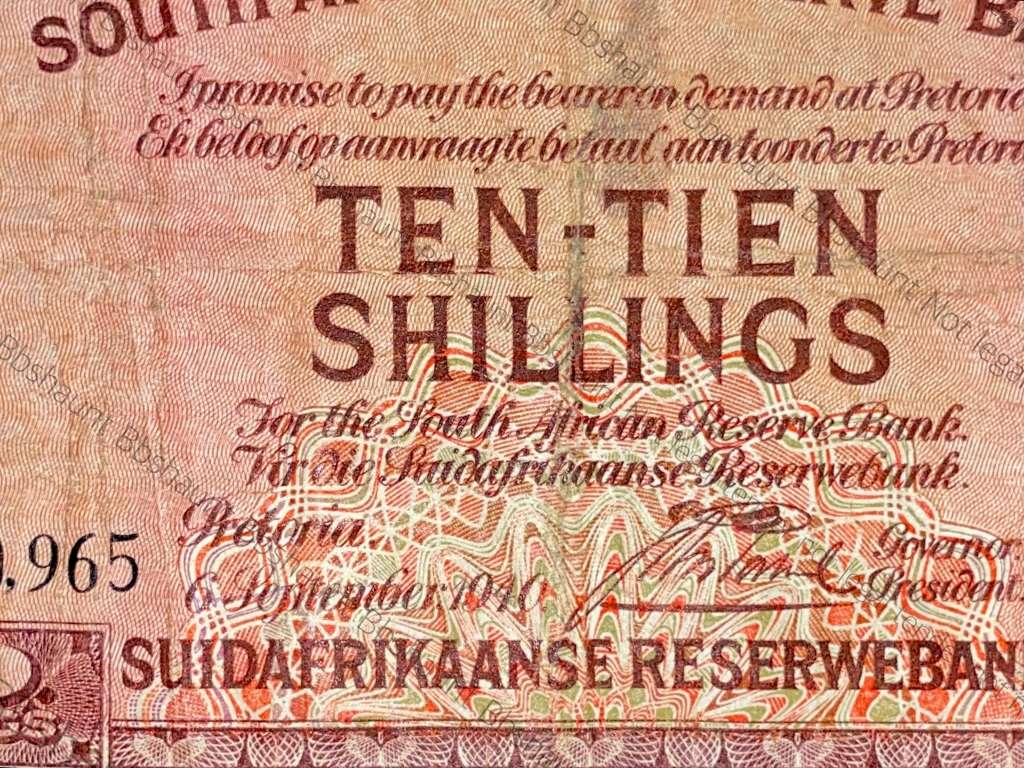 SOUTH AFRICAN RESERVE BA
I promise to pay the bearer on demand at Pretoria
Ek beloof op aanvraag te betaal aan toonder te Pretoria
TEN-TIEN
SHILLINGS
For the South African Reserve Bank.
Vir die Suidafrikaanse Reserwebank.
Pretoria
Governor
.965
6 September 1940
President
SUIDAFRIKAANSE RESERWEBAN